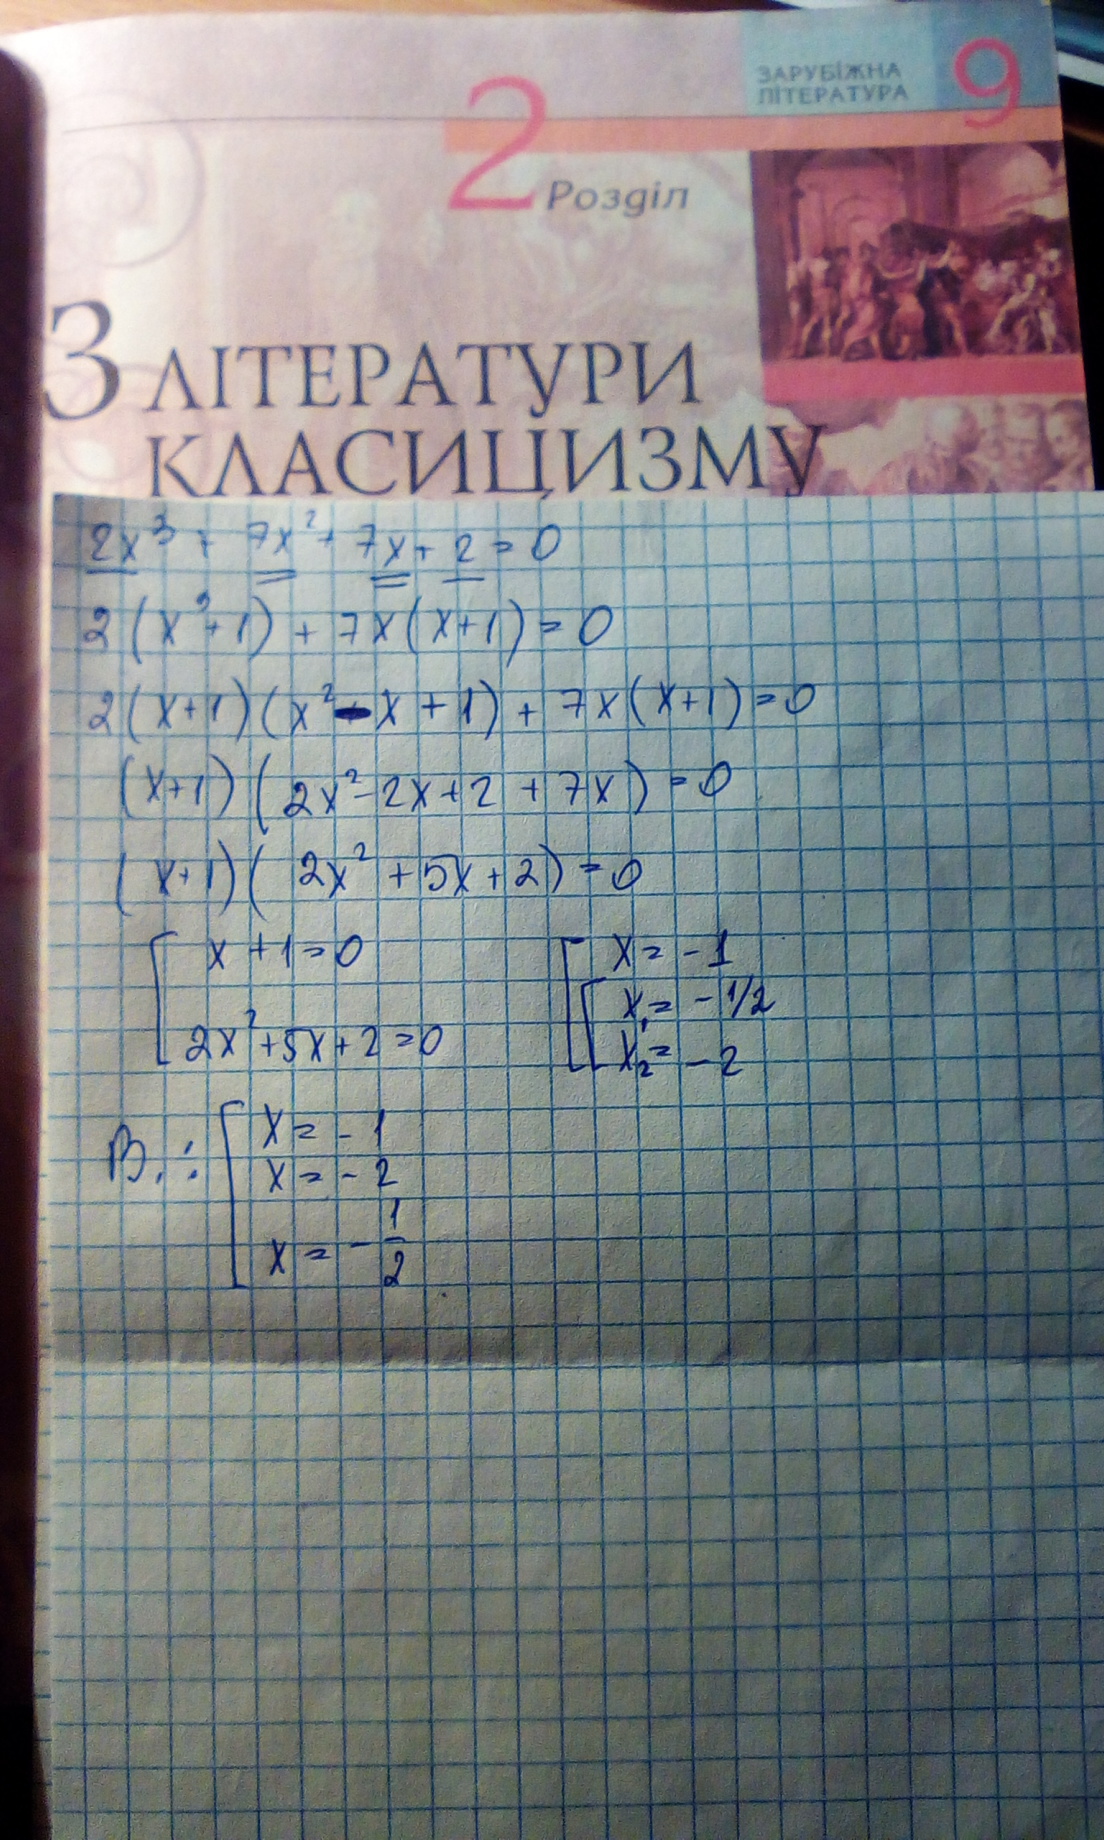 ЗАРУБІЖНА
ЛІТЕРАТУРА
9
2
Розділ
З ЛІТЕРАТУРИ
КЛАСИЦИЗМУ
2x³ + 7x² + 7x + 2 = 0
2(x³+1) + 7x(x+1) = 0
2(x+1)(x²-x+1) + 7x(x+1) = 0
(x+1)(2x²-2x+2+7x) = 0
(x+1)(2x²+5x+2) = 0
x+1=0
2x²+5x+2=0
x = -1
x₁ = -1/2
x₂ = -2
В.:
x = -1
x = -2
x = -1/2